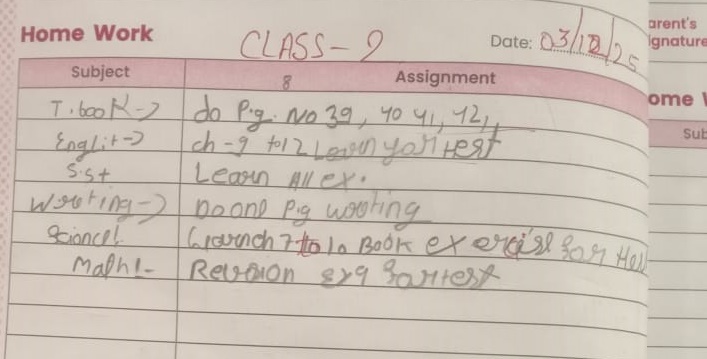 Home Work
CLASS - 9
Date: 03/12/25
arent's
ignature
Subject
8
Assignment
T.book-> do P.g. No 39, 40 41, 42,
Englit-> ch-9 to 12 Learn for test
S.st Learn All ex.
Writing-> Do one P.g writing
Science!. ch 7 to 10 Book exercise for
Math!- Revision ex9 for test
ome
Sub